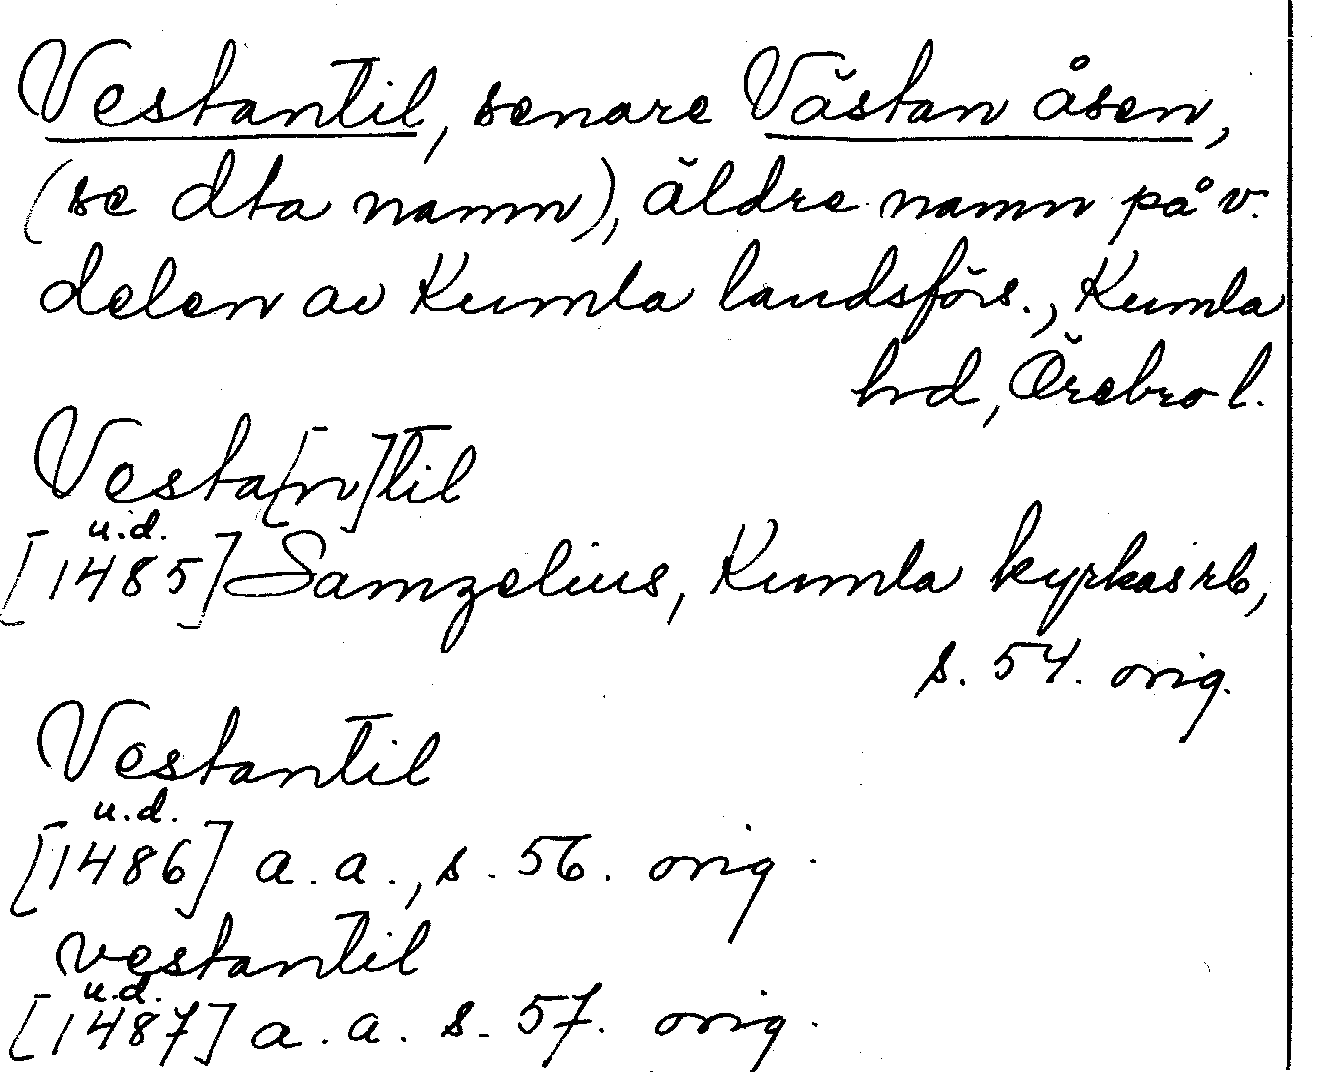 Vestantil, senare Västan åsen,
(se dta namn), äldre namn på v.
delen av Kumla landsförs., Kumla
hd, Örebro l.
Vesta[n]til
u.d.
[1485] Samzelius, Kumla kyrkas rb,
s. 54. orig.
Vestantil
u.d.
[1486] a. a., s. 56. orig.
vestantil
u.d.
[1487] a. a. s. 57. orig.